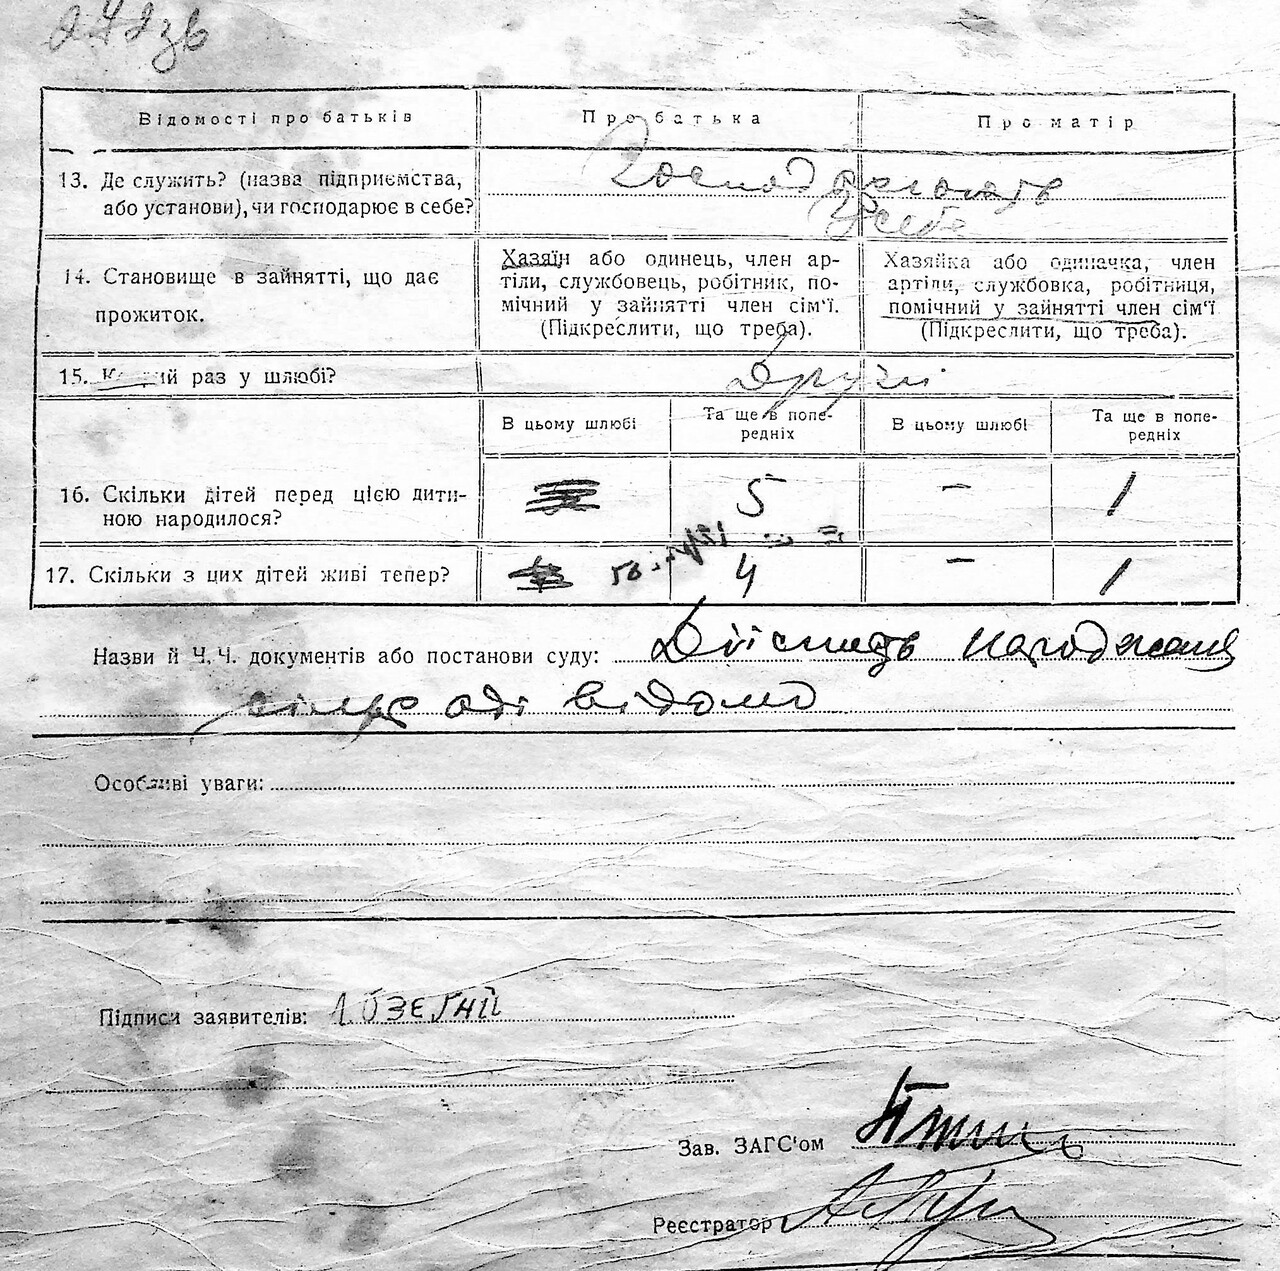 242зв
Відомості про батьків Про батька Про матір
13. Де служить? (назва підприємства, або установи), чи господарює в себе?
Господарюють
У себе
14. Становище в зайнятті, що дає прожиток.
Хазяїн або одинець, член ар-
тіли, службовець, робітник, по-
мічний у зайнятті член сім'ї.
(Підкреслити, що треба).
Хазяйка або одиначка, член
артіли, службовка, робітниця,
помічний у зайнятті член сім'ї
(Підкреслити, що треба).
15. Котрий раз у шлюбі? Другий
В цьому шлюбі Та ще в попе-
редніх В цьому шлюбі Та ще в попе-
редніх
16. Скільки дітей перед цією дити-
ною народилося? 5 – 1
17. Скільки з цих дітей живі тепер? 4 – 1
Назви й Ч.Ч. документів або постанови суду: Дійсність народження
сільраді відомо
Особливі уваги:
Підписи заявителів:
Зав. ЗАГС'ом
Реєстратор